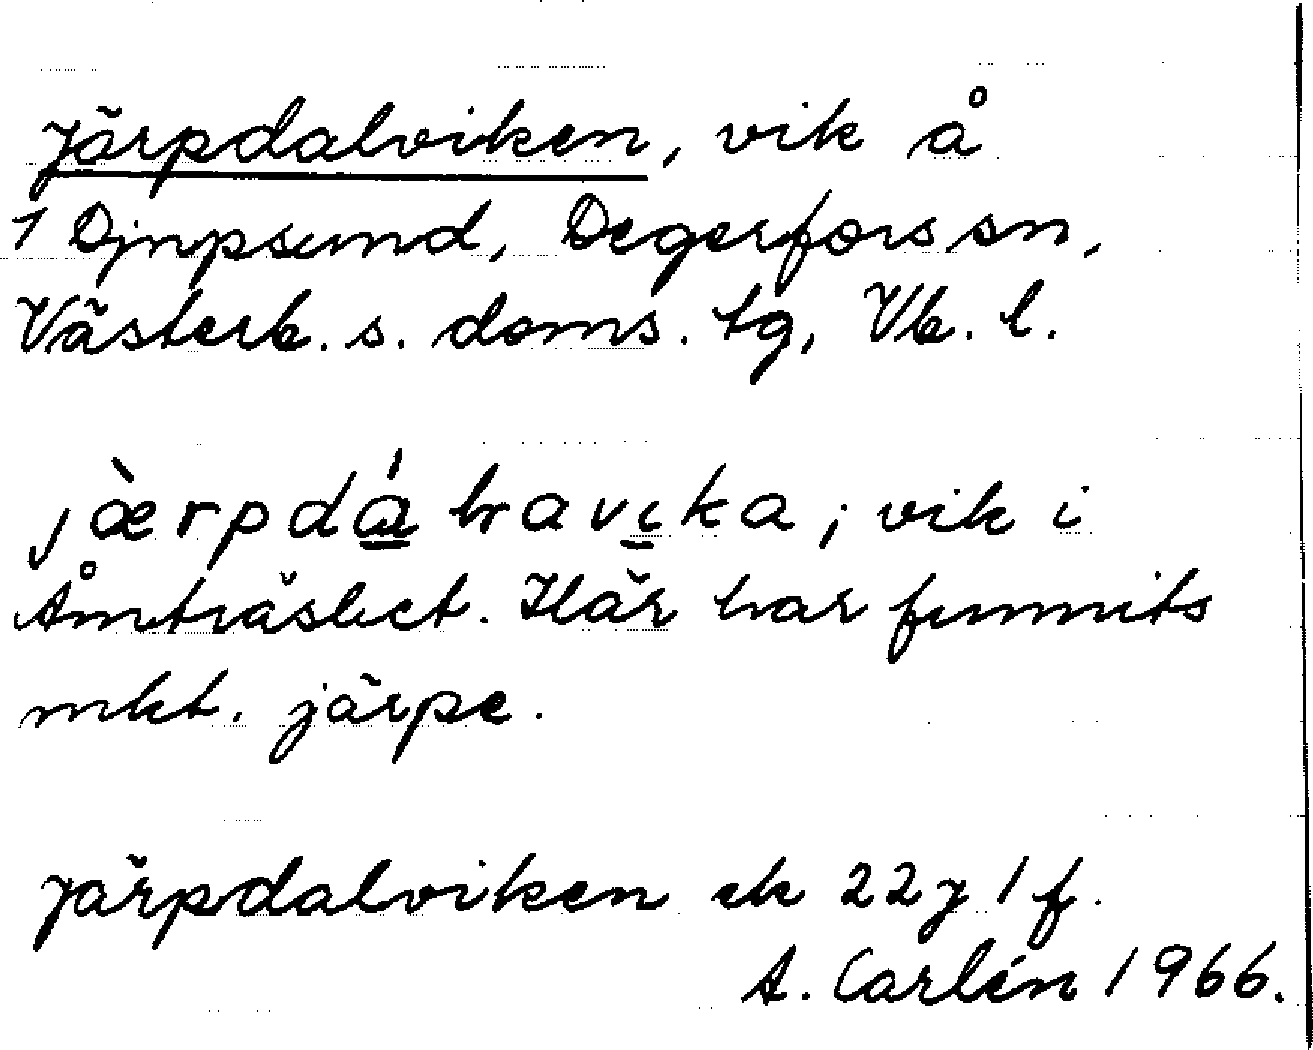 Järpdalviken, vik å
1 Djupsund, Degerfors sn,
Västerb. s. doms. tg, Vb. l.
jæ̀rpdá̲ havɩ̲ka; vik i
Åmträsket. Här har funnits
mkt. järpe.
Järpdalviken ek 22J 1 f.
A. Carlén 1966.